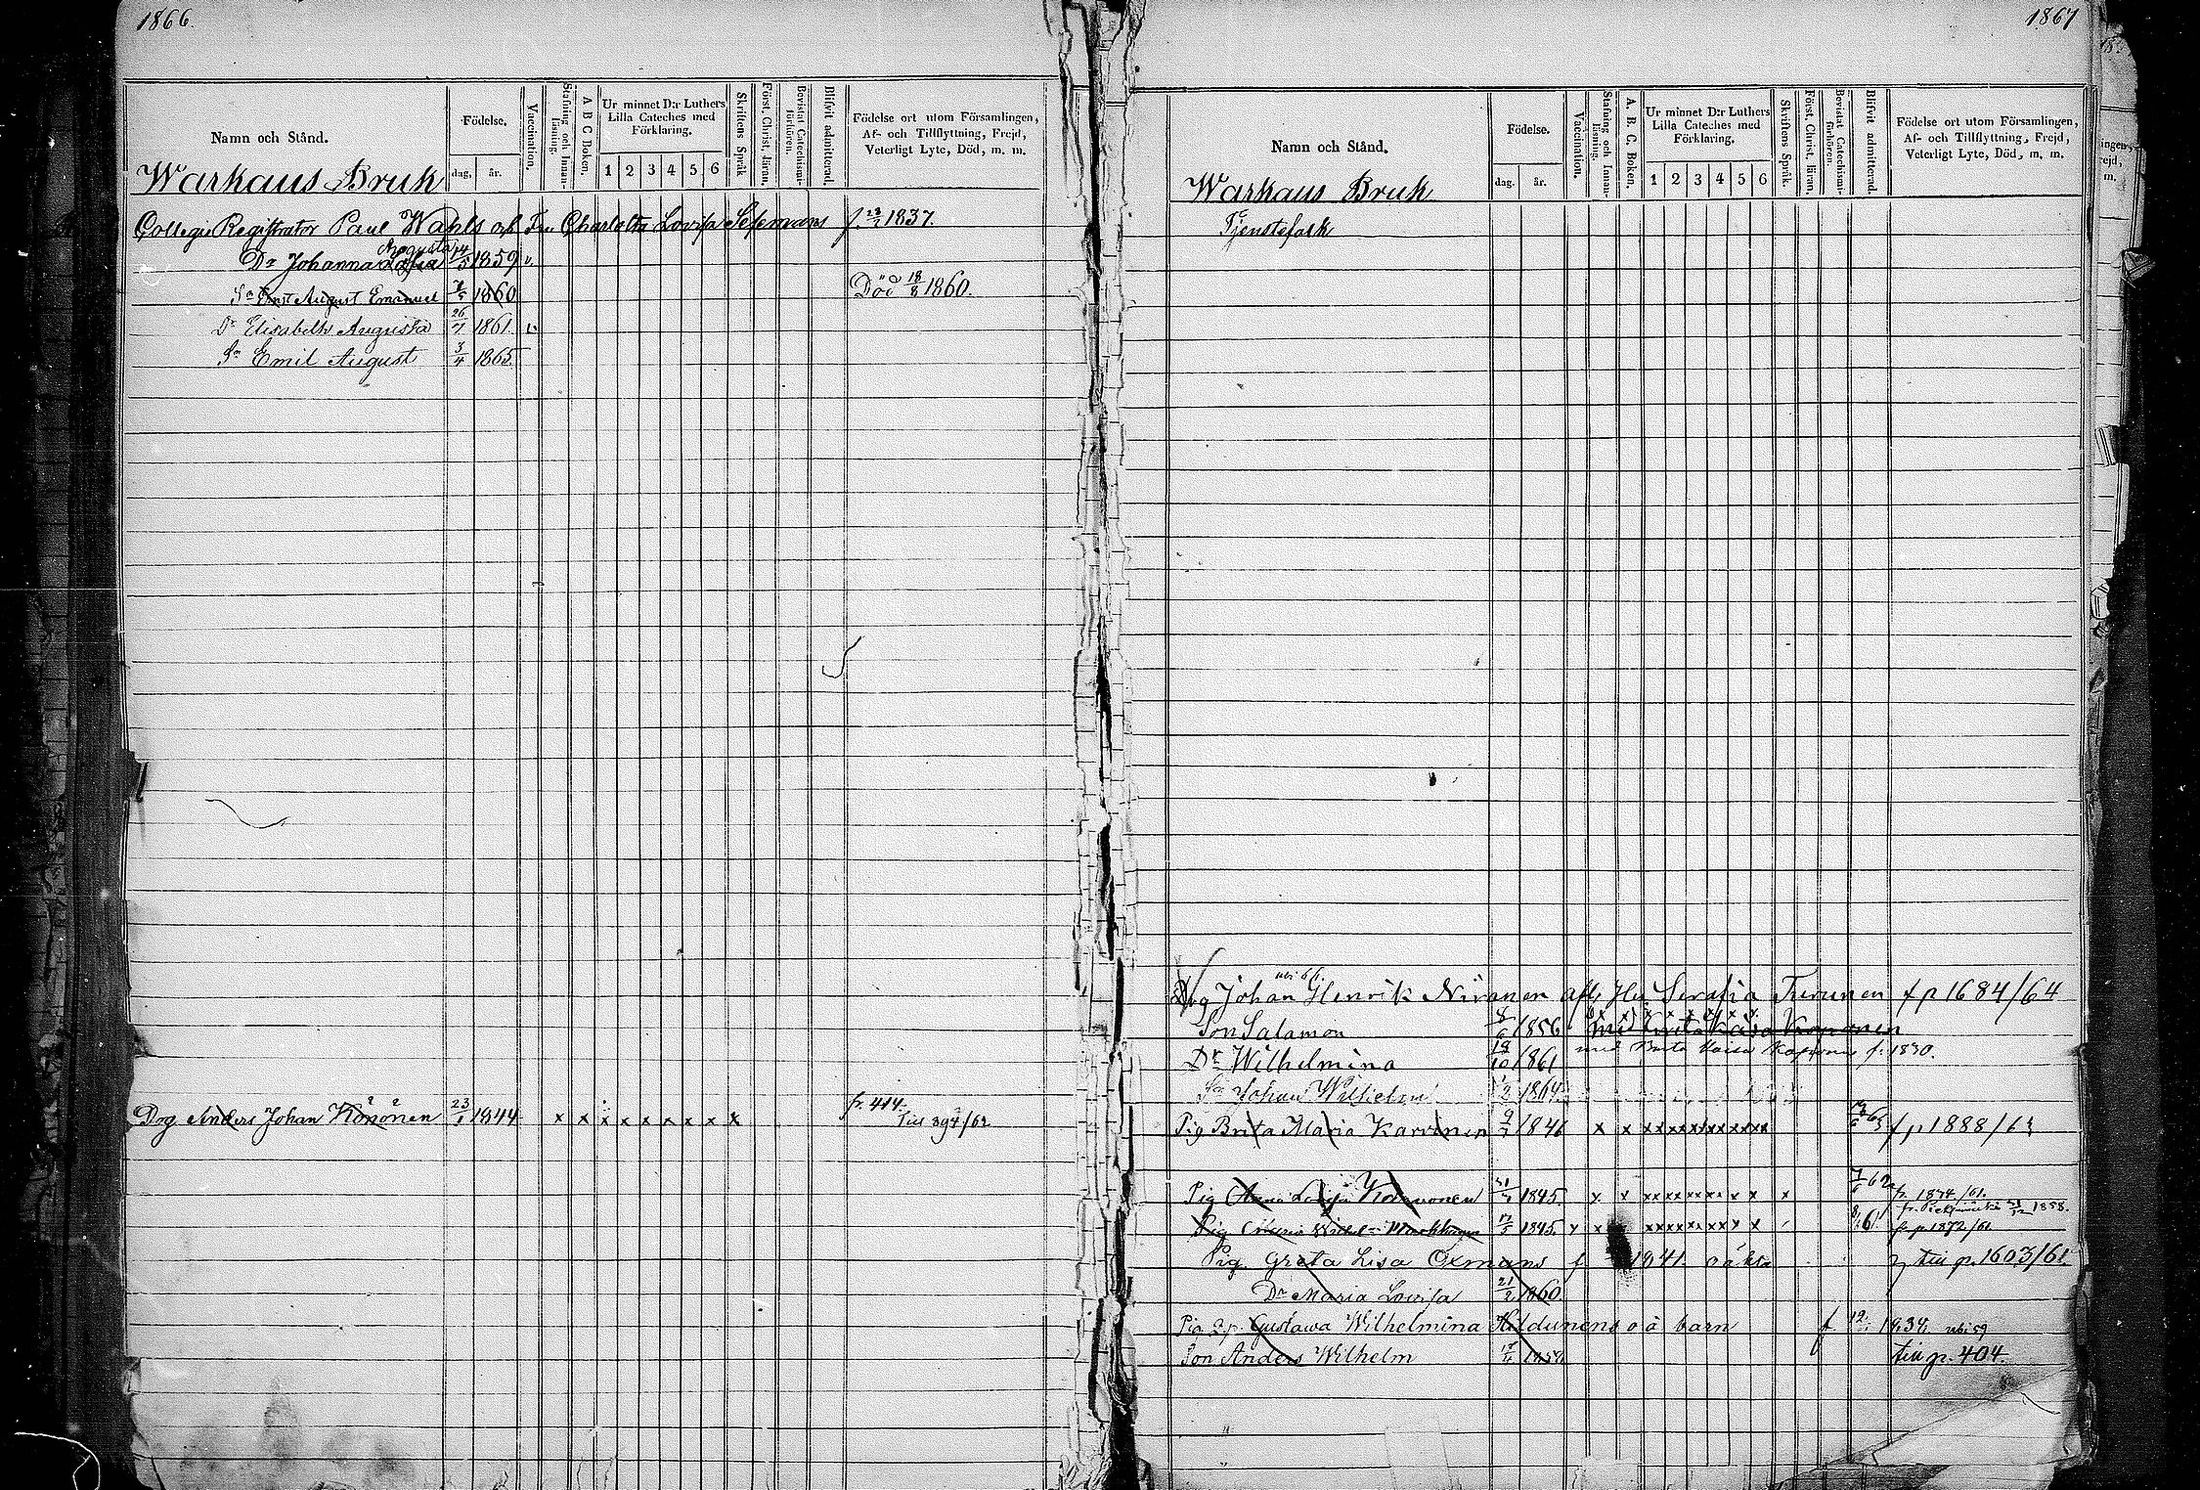 1866.
Namn och Stånd.
Födelse.
dag,
år.
Vaccination.
Stafning och Innan-
läsning.
A B C Boken.
Ur minnet D:r Luthers
Lilla Cateches med
Förklaring.
1 2 3 4 5 6
Skriftens Språk
Först. Christ. läran.
Bevistat Catechismi-
förhören.
Blifvit admitterad.
Födelse ort utom Församlingen,
Af- och Tillflyttning, Frejd,
Veterligt Lyte, Död, m. m.
Warkaus Bruk
Collegii Registrator Paul Wahls och Fru Charlotta Lovisa Sesemans f. 1837.
Augusta
Dr Johanna Sofia 1859 v.
Sn Ernst August Emanuel 1860 Död 18/8 1860.
Dr Elisabeth Augusta 26/7 1861. v.
Sn Emil August 3/4 1865.
Drg Anders Johan Könönen 23/1 1844 x x x x x x x x x fr. 414.
Till 894/62
1867
Namn och Stånd.
Födelse.
dag.
år.
Vaccination.
Stafning och Innan-
läsning.
A. B. C. Boken.
Ur minnet D:r Luthers
Lilla Cateches med
Förklaring.
1 2 3 4 5 6
Skriftens Språk.
Först. Christ. läran.
Bevistat Catechismi-
förhören.
Blifvit admitterad.
Födelse ort utom Församlingen,
Af- och Tillflyttning, Frejd,
Veterligt Lyte, Död, m. m.
Warkaus Bruk
Tjenstefolk
Drg Johan Henrik Niranen Serafia Turunen f p 1684/64
Son Salamon 1856
Dr Wilhelmina 19/10 1861 med Brita Kaisa f. 1830.
Sn Johan Wilhelm 1864
Pig Brita Maria Karvinen 1846 x x x x x x x x x x f p 1888/63
Pig Anna 1845. x x x x x x x x x x x fr. 1874/61.
Pig Maria 1845. x x x x x x x x x x 1858.
f p 1872/61
Pig. Greta Lisa Oxmans f 1841. o äkta till p. 1603/61.
Dr Maria Lovisa 21/2 1860.
Pig Gustava Wilhelmina o ä barn f. 1834
Son Anders Wilhelm till p. 404.